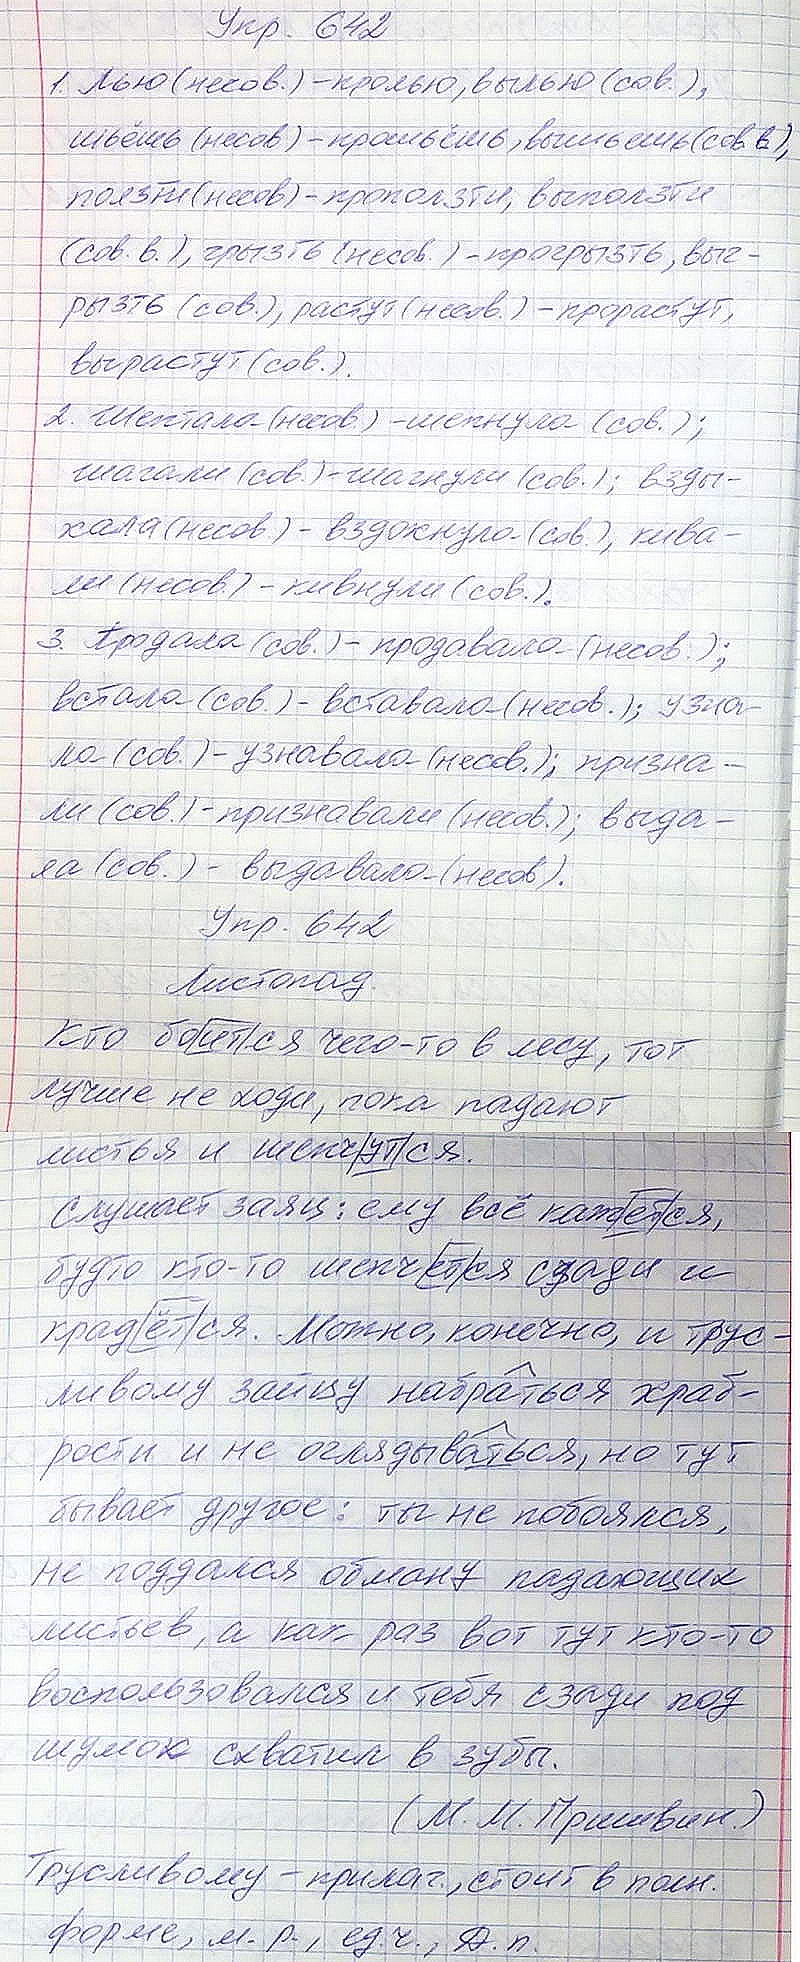 Упр. 642
1. Лью (несов.) - пролью, вылью (сов.),
шьёшь (несов) - прошьёшь, вышьешь (сов в.),
ползти (несов) - проползти, выползти
(сов. в.), грызть (несов.) - прогрызть, выг-
рызть (сов.), растут (несов.) - прорастут,
вырастут (сов.).
2. Шептала (несов.) - шепнула (сов.);
шагали (сов.) - шагнули (сов.); взды-
хала (несов.) - вздохнула (сов.), кива-
ли (несов.) - кивнули (сов.).
3. Продала (сов.) - продавала (несов.);
встала (сов.) - вставала (несов.); узна-
ла (сов.) - узнавала (несов.); призна-
ли (сов.) - признавали (несов.); выда-
ла (сов.) - выдавала (несов).
Упр. 642
Листопад.
Кто боится чего-то в лесу, тот
лучше не ходи, пока падают
листья и шепчутся.
Слушает заяц: ему всё кажется,
будто кто-то шепчется сзади и
крадётся. Можно, конечно, и трус-
ливому зайцу набраться храб-
рости и не оглядываться, но тут
бывает другое: ты не побоялся,
не поддался обману падающих
листьев, а как раз вот тут кто-то
воспользовался и тебя сзади под
шумок схватил в зубы.
(М. М. Пришвин.)
Трусливому - прилаг., стоит в полн.
форме, м. р., ед.ч., Д. п.